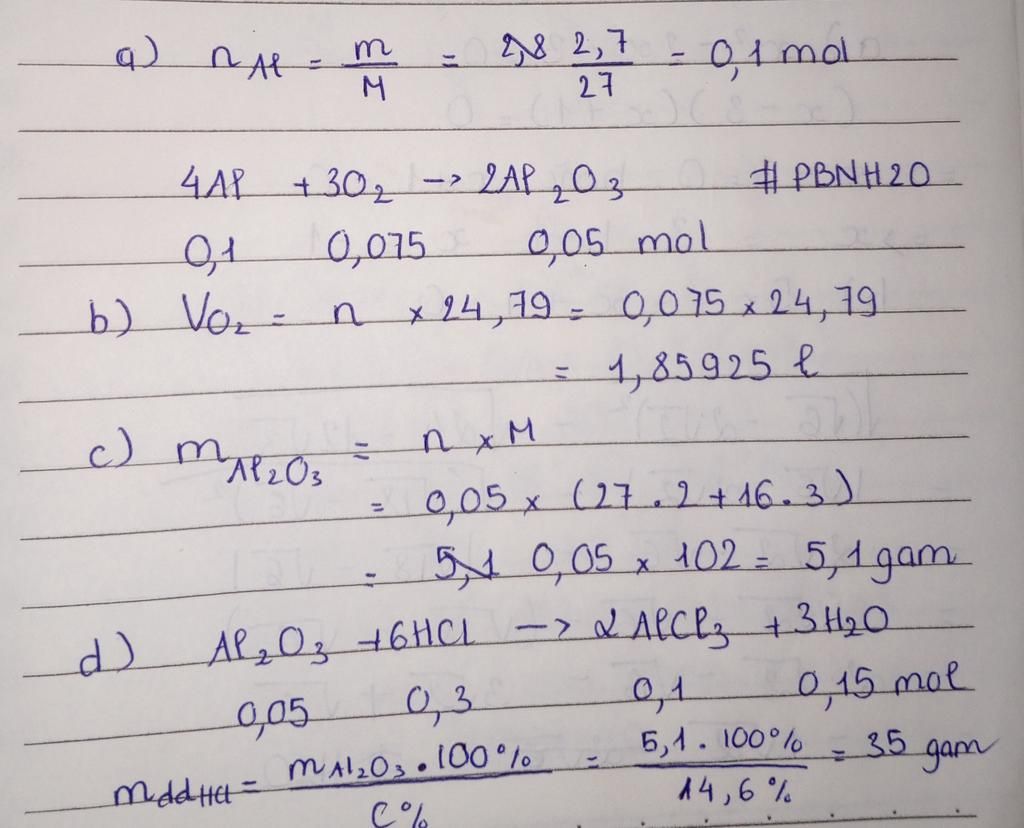 a) n Al = m/M = 2,8 2,7/27 = 0,1 mol
4Al + 3O2 -> 2Al2O3 # PBNH20
0,1 0,075 0,05 mol
b) VO2 = n × 24,79 = 0,075 × 24,79
= 1,85925 l
c) m Al2O3 = n × M
= 0,05 × (27.2+16.3)
= 5,1 0,05 × 102 = 5,1 gam
d) Al2O3 +6HCl -> 2AlCl3 + 3H2O
0,05 0,3 0,1 0,15 mol
mddHCl = mAl2O3.100%/C% = 5,1.100%/14,6% = 35 gam